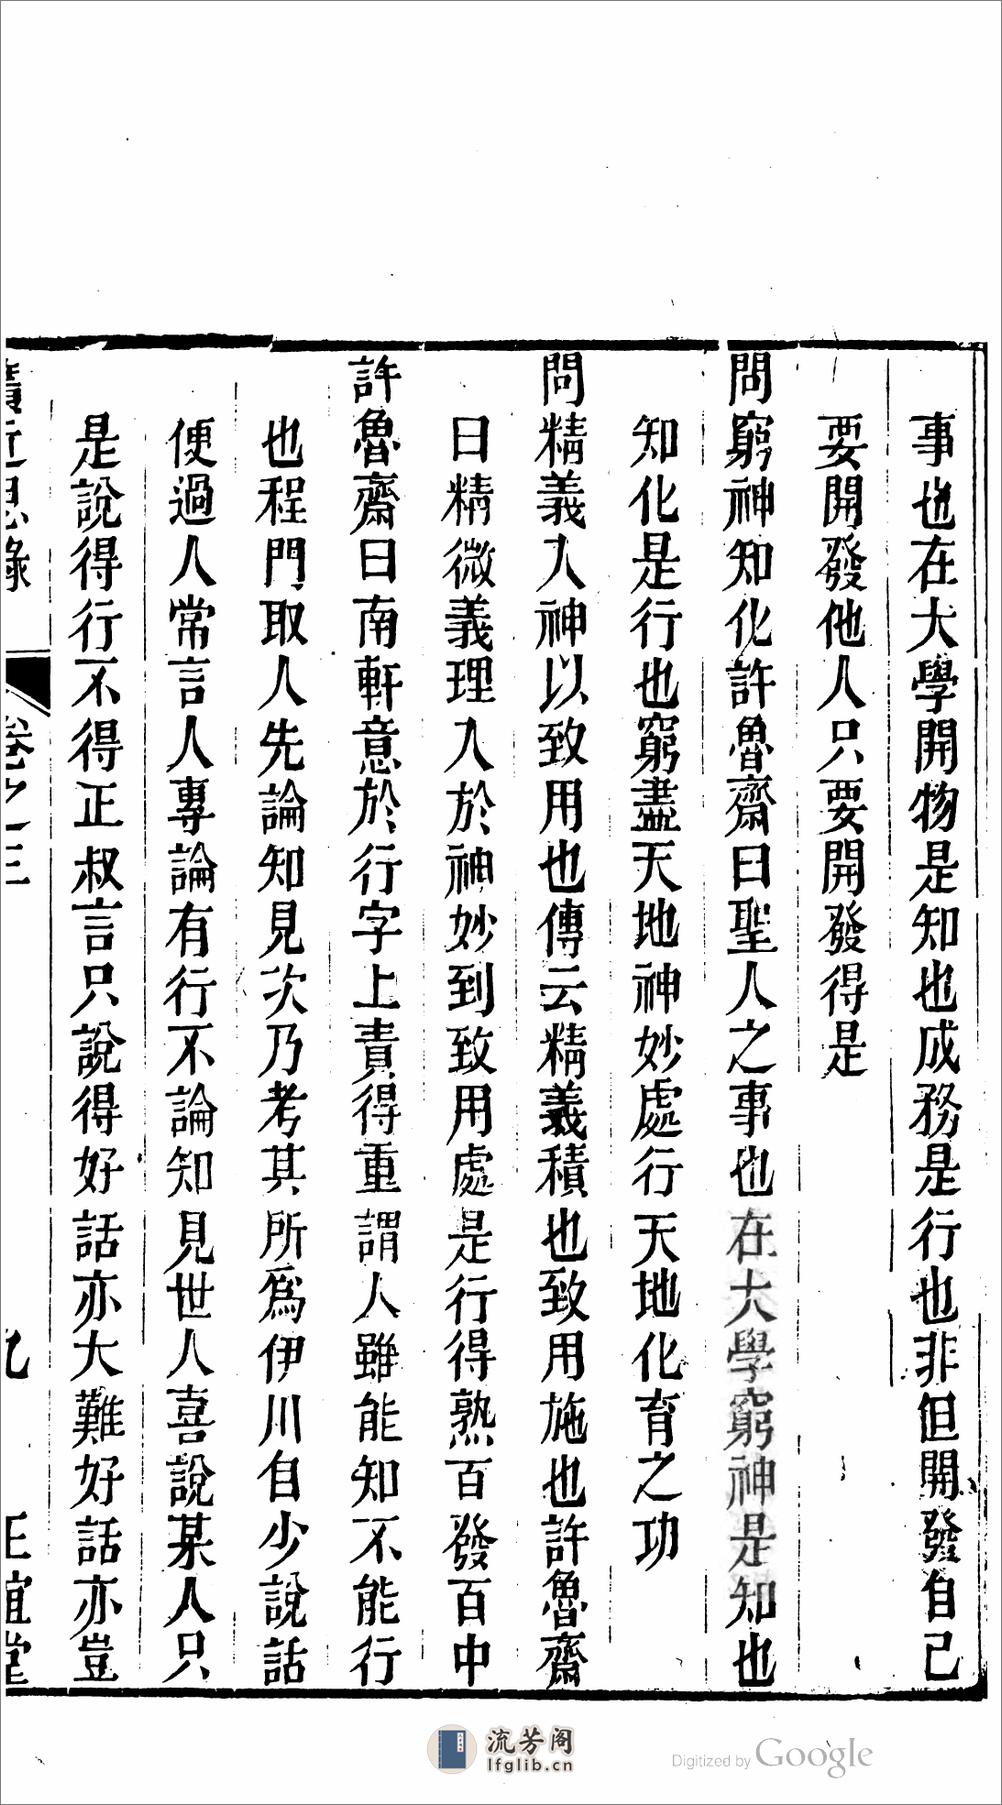 事也在大學開物是知也成務是行也非但開發自己
要開發他人只要開發得是
問窮神知化許魯齋曰聖人之事也在大學窮神是知也
知化是行也窮盡天地神妙處行天地化育之功
問精義入神以致用也傳云精義積也致用施也許魯齋
曰精微義理入於神妙到致用處是行得熟百發百中
許魯齋曰南軒意於行字上責得重謂人雖能知不能行
也程門取人先論知見次乃考其所爲伊川自少說話
便過人常言人專論有行不論知見世人喜說某人只
是說得行不得正叔言只說得好話亦大難好話亦豈
廣近思錄 卷之三 九 正誼堂
流芳阁
lfglib.cn
Digitized by Google